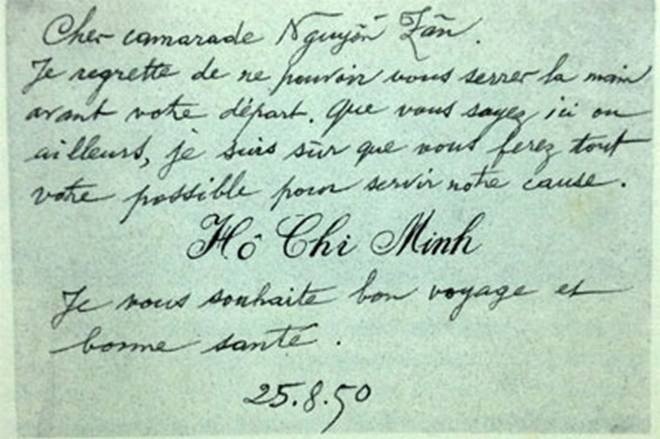 Cher camarade Nguyễn Zân.
Je regrette de ne pouvoir vous serrer la main
avant votre départ. Que vous soyez ici ou
ailleurs, je suis sûr que vous ferez tout
votre possible pour servir notre cause.
Hô Chi Minh
Je vous souhaite bon voyage et
bonne santé.
25.8.50